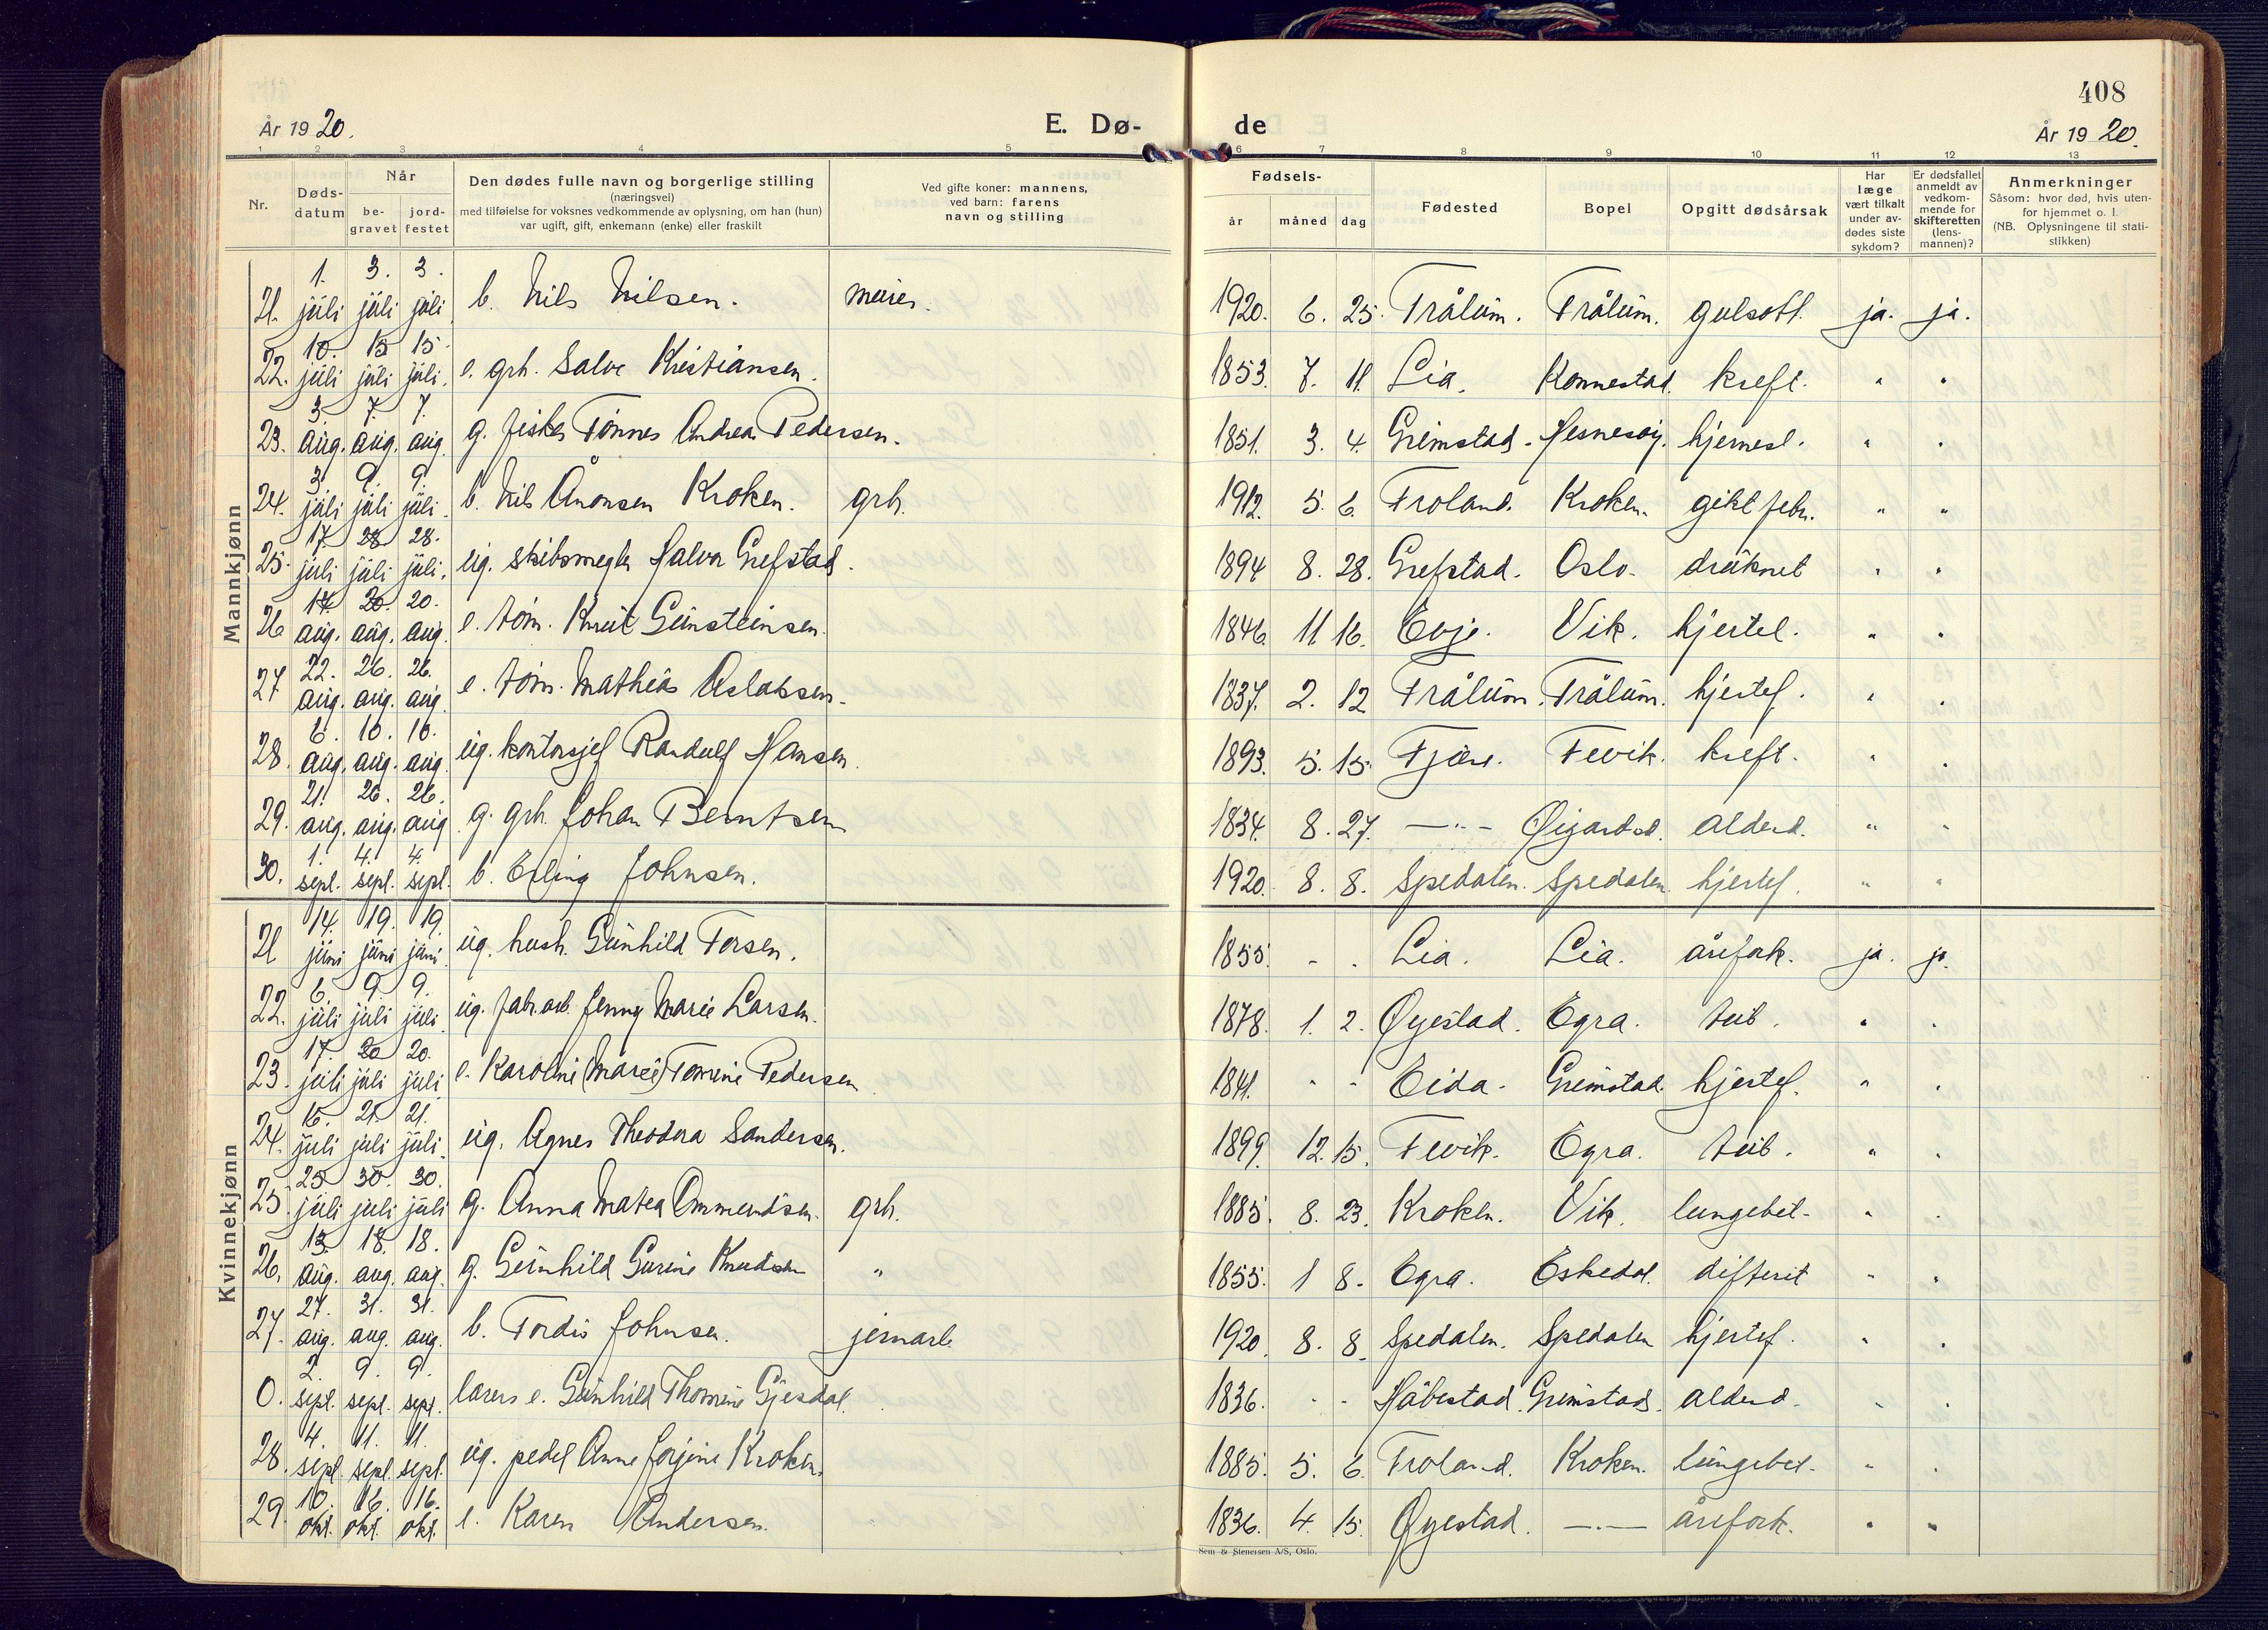 408
År 1920.
E. Dø-
de
År 1920.
1 2 3 4 5 6 7 8 9 10 11 12 13
Nr.
Dødsdatum
Når
begravet
jordfestet
Den dødes fulle navn og borgerlige stilling
(næringsvei)
med tilføielse for voksnes vedkommende av oplysning, om han (hun)
var ugift, gift, enkemann (enke) eller fraskilt
Ved gifte koner: mannens,
ved barn: farens
navn og stilling
Fødsels-
år
måned
dag
Fødested
Bopel
Opgitt dødsårsak
Har
læge
vært tilkalt
under av-
dødes siste
sykdom?
Er dødsfallet
anmeldt av
vedkom-
mende for
skifteretten
(lens-
mannen)?
Anmerkninger
Såsom: hvor død, hvis uten-
for hjemmet o. l.
(NB. Oplysningene til stati-
stikken)
Mannkjønn
21. 1. juli 3. juli 3. juli b. Nils Nilsen. murer. 1920. 6. 25. Trålum. Trålum. gulsott. ja. ja.
22. 10. juli 15 juli 15. juli. e. grh. Salve Kristiansen. 1853. 7. 11. Lia. Konnestad. kreft. " "
23. 3. aug. 7. aug. 7. aug. g. fisker Tønnes Andreas Pedersen. 1851. 3. 4. Grimstad. Hesnesøy. hjernesl. " "
24. 3. juli 9. juli 9. juli. b. Nils Ånonsen Kroken. grh. 1912. 5. 6. Froland. Kroken. giktfebr. " "
25. 17. juli 28 juli 28. juli. ug. skibsmegler Halvor Grefstad. 1894 8. 28. Grefstad. Oslo. druknet " "
26 14. aug. 20. aug. 20. aug. e. tøm. Knut Gunsteinsen. 1846. 11. 16. Evje. Vik. hjertel. " "
27 22. aug. 26. aug. 26. aug. e. tøm. Mathias Aslaksen. 1837. 2. 12 Trålum. Trålum. hjertef. " "
28. 6. aug. 10. aug. 10. aug. ug. kontorsjef Randulf Hansen. 1893. 5. 15. Fjære. Fevik. kreft. " "
29. 21. aug. 26. aug. 26. aug g. grh. Johan Berntsen 1834. 8. 27. —"— Øigardsd. alderd. " "
30. 1. sept. 4. sept. 4. sept. b. Erling Johnsen. 1920. 8. 8. Spedalen. Spedalen. hjertef. " "
Kvinnekjønn
21 14. juni 19. juni 19. juni ug. hush. Gunhild Torsen. 1855. - - Lia. Lia. årefork. ja. ja.
22. 6. juli 9. juli 9. juli ug. fabr.arb. Jenny Marie Larsen. 1878. 1. 2. Øyestad. Egra. tub. " "
23. 17. juli 20 juli 20. juli e. Karoline (Marie) Tomine Pedersen 1841. - - Eida. Grimstad. hjertef. " "
24. 15. juli 21. juli 21. juli. ug. Agnes Theodora Sandersen. 1899. 12. 15. Fevik. Egra. tub. " "
25. 25 juli 30. juli 30. juli g. Anna Matea Ommundsen. grh. 1885. 8. 23. Kroken. Vik. lungebet. " "
26. 13. aug. 18. aug. 18. aug. g. Gunhild Gurine Knudsen " 1855. 1 8. Egra. Eskedal. difterit " "
27. 27. aug. 31. aug. 31. aug. b. Tordis Johnsen. jernarb. 1920. 8. 8. Spedalen. Spedalen hjertef. " "
0. 2. sept. 9. sept. 9. sept. lærers e. Gunhild Thomine Gjesdal. 1836. - - Håbestad. Grimstad. alderd. " "
28. 4. sept. 11. sept. 11. sept. ug. pedel Anne Jorgine Kroken. 1885. 5. 6. Froland. Kroken. lungebet. " "
29. 10. okt. 16. okt. 16. okt. e. Karen Andersen. 1836. 4. 15. Øyestad. —"— årefork. " "
Sem & Stenersen A/S, Oslo.